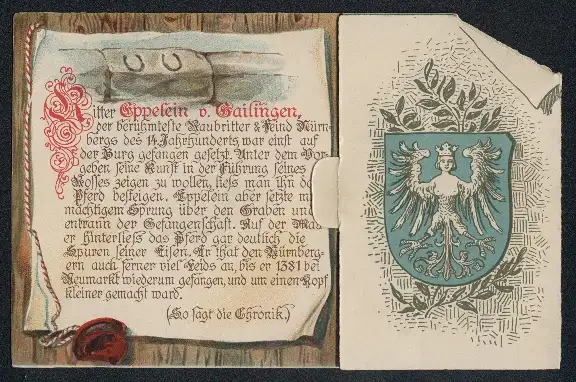 Ritter Eppelein v. Gailingen,
der berühmteste Raubritter & Feind Nürn-
bergs des 14. Jahrhunderts, war einst auf
der Burg gefangen gesetzt. Unter dem Vor
geben seine Kunst in der Führung seines
Rosses zeigen zu wollen, liess man ihn d
Pferd besteigen. Eppelein aber setzte m
mächtigem Sprung über den Graben und
entrann der Gefangenschaft. Auf der Mau
er hinterliess das Pferd gar deutlich die
Spuren seiner Eisen. Er that den Nürnberg-
ern auch ferner viel Leids an, bis er 1381 bei
Neumarkt wiederum gefangen, und um einen Kopf
kleiner gemacht ward.
(So sagt die Chronik.)